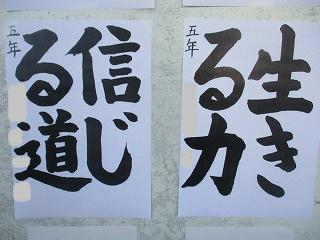 生き
る力
五年
信じ
る道
五年